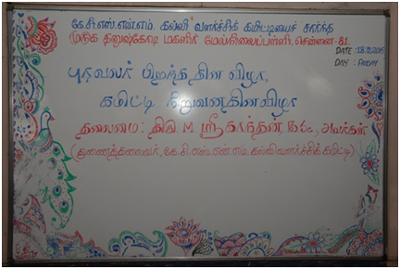 கே.சி.எஸ்.என்.எம். கல்வி வளர்ச்சிக் கமிட்டியைச் சார்ந்த
முத்தி தனுஷ்கோடி மகளிர் மேல்நிலைப்பள்ளி, சென்னை-81.
DATE :
DAY : FRIDAY
புரவலர் பிறந்ததின விழா,
கமிட்டி நிறுவனதினவிழா
தலைமை : திரு. M. ஸ்ரீகாந்தன் அவர்கள்
(துணைத்தலைவர், கே.சி.எஸ்.என்.எம். கல்வி வளர்ச்சிக் கமிட்டி)